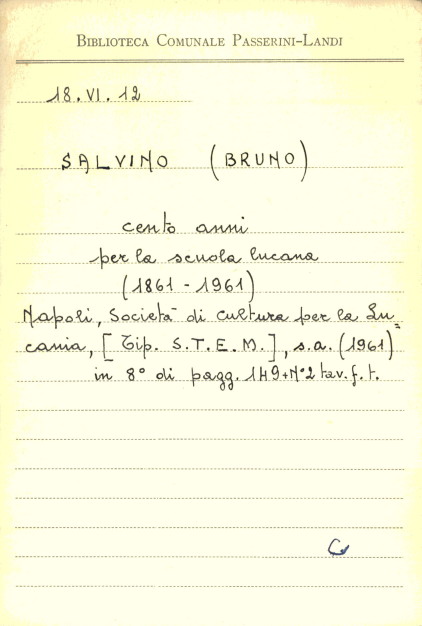 BIBLIOTECA COMUNALE PASSERINI-LANDI
18. VI. 12
SALVINO (BRUNO)
cento anni
per la scuola lucana
(1861 - 1961)
Napoli, Società di cultura per la Lu=
cania, [Tip. S.T.E.M.], s.a. (1961)
in 8° di pagg. 149+N°2 tav. f. t.